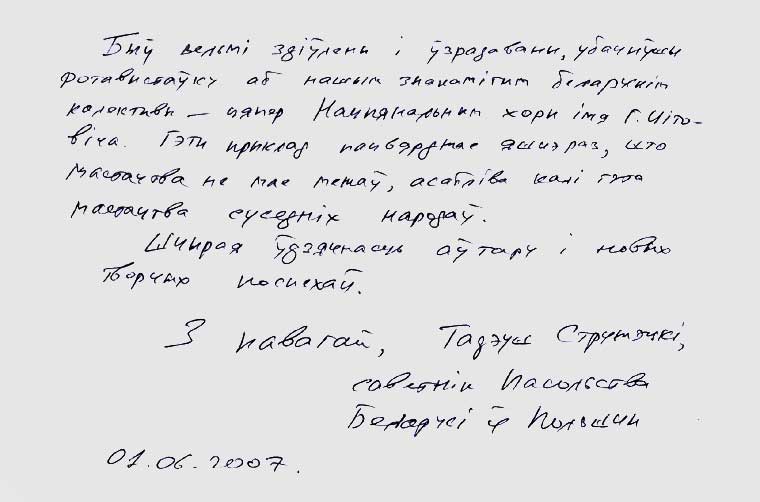 Быў вельмі здзіўлены і ўзрадаваны, убачыўшы
фотавыстаўку аб нашым знакамітым беларускім
калектыве – цяпер Нацыянальным хоры імя Г. Ціто-
віча. Гэты прыклад пацвярджае яшчэ раз, што
мастацтва не мае межаў, асабліва калі гэта
мастацтва суседніх народаў.
Шчырая ўдзячнасць аўтару і новых
творчых поспехаў.
З павагай, Тадэуш Стружэцкі,
саветнік Пасольства
Беларусі ў Польшчы
01.06.2007.